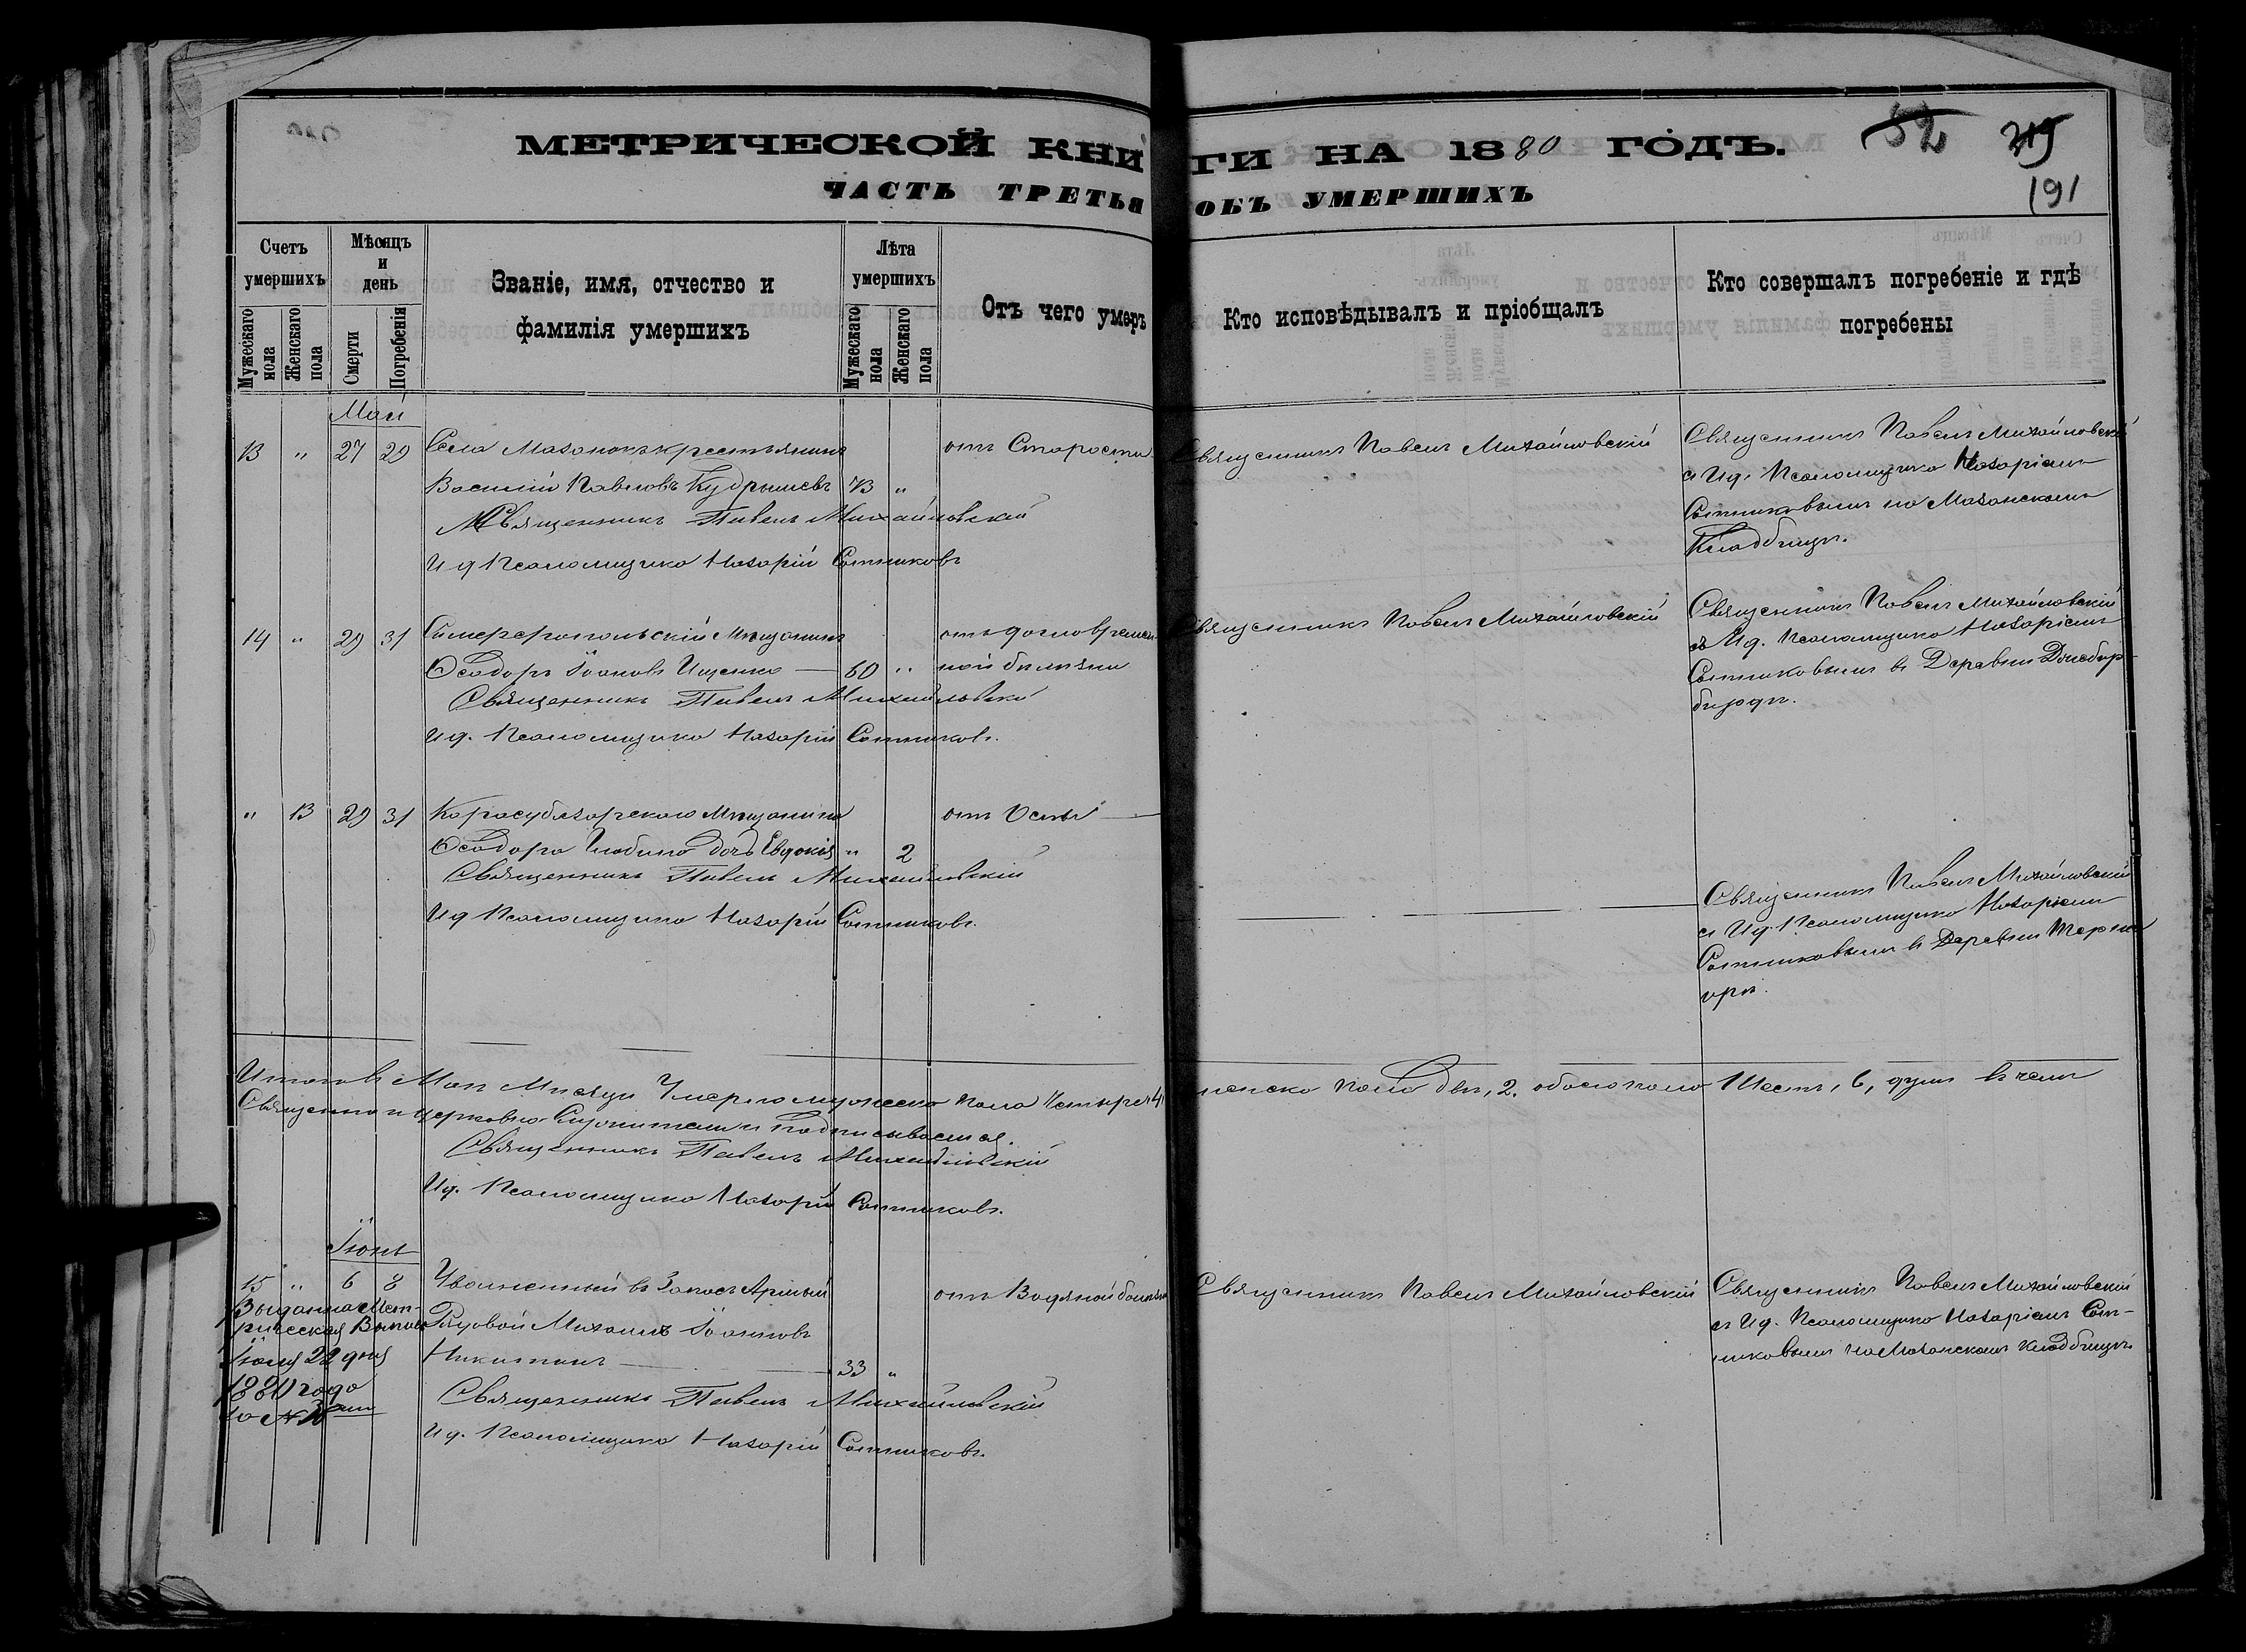 МЕТРИЧЕСКОЙ КНИГИ НА 1880 ГОДЪ.
52 219
191
ЧАСТЬ ТРЕТЬЯ ОБЪ УМЕРШИХЪ
Счетъ умершихъ
Мѣсяцъ и день
Званіе, имя, отчество и фамилія умершихъ
Лѣта умершихъ
Отъ чего умеръ
Кто исповѣдывалъ и пріобщалъ
Кто совершалъ погребеніе и гдѣ погребены
Мужескаго пола
Женскаго пола
Смерти
Погребенія
Мужескаго пола
Женскаго пола
Май
13 " 27 29 Села Мазанокъ крестьянинъ отъ Старости Священникъ Павелъ Михайловскій Священникъ Павелъ Михайловскій
Василій Павловъ Кудрышевъ 73 " съ Ид. Псаломщика Назаріемъ
Священникъ Павелъ Михайловскій Сотниковымъ на Мазанскомъ
Ид Псаломщика Назарій Сотниковъ Кладбищѣ.
14 " 29 31 Симферопольскій Мѣщанинъ отъ долговремен Священникъ Павелъ Михайловскій Священникъ Павелъ Михайловскій
Ѳеодоръ Іоанновъ Ищенко 60 " ной болѣзни съ Ид. Псаломщика Назаріемъ
Священникъ Павелъ Михайловскій Сотниковымъ въ Деревни
Ид. Псаломщика Назарій Сотниковъ.
" 13 29 31 Карасубазарскаго Мѣщанина отъ Оспы
Ѳеодора дочь Евдокія " 2
Священникъ Павелъ Михайловскій Священникъ Павелъ Михайловскій
Ид Псаломщика Назарій Сотниковъ. съ Ид. Псаломщика Назаріемъ
Сотниковымъ въ Деревни
Итого въ Маѣ Мѣсяцѣ Умерло мужеска пола Четыре, 4, женска пола двѣ, 2. обоего пола Шесть, 6, душъ въ чемъ
Священно и церковно-служители и Подписываемся.
Священникъ Павелъ Михайловскій
Ид. Псаломщика Назарій Сотниковъ.
Іюнь
15 " 6 8 Уволенный въ Запасъ Арміи отъ Водяной болѣзни Священникъ Павелъ Михайловскій Священникъ Павелъ Михайловскій
Рядовой Михаилъ Іоанновъ съ Ид. Псаломщика Назаріемъ Сот-
Никитинъ 33 " никовымъ на Мазанскомъ Кладбищѣ
Священникъ Павелъ Михайловскій
Ид. Псаломщика Назарій Сотниковъ.
Выданна Мет-
рическая
Іюля 22 дня
1880 года
за №